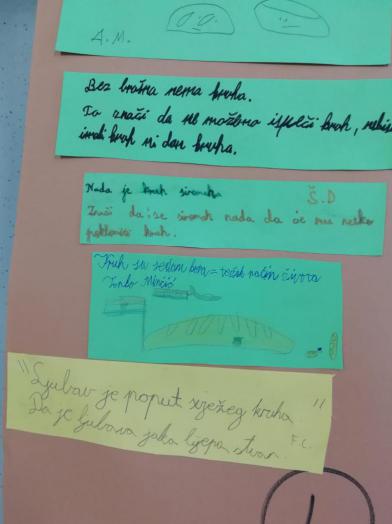 A.M.
Bez brašna nema kruha.
To znači da ne možemo ispeči kruh,
imati kruh ni dan kruha.
Nada je kruh siromaha Š.D
Znači da se siromah nada da će mu netko
pokloniti kruh.
Kruh sa sedam kora = težak način života
Tonko
"Ljubav je poput svježeg kruha"
Da je ljubav jaka lijepa stvar. F.C.